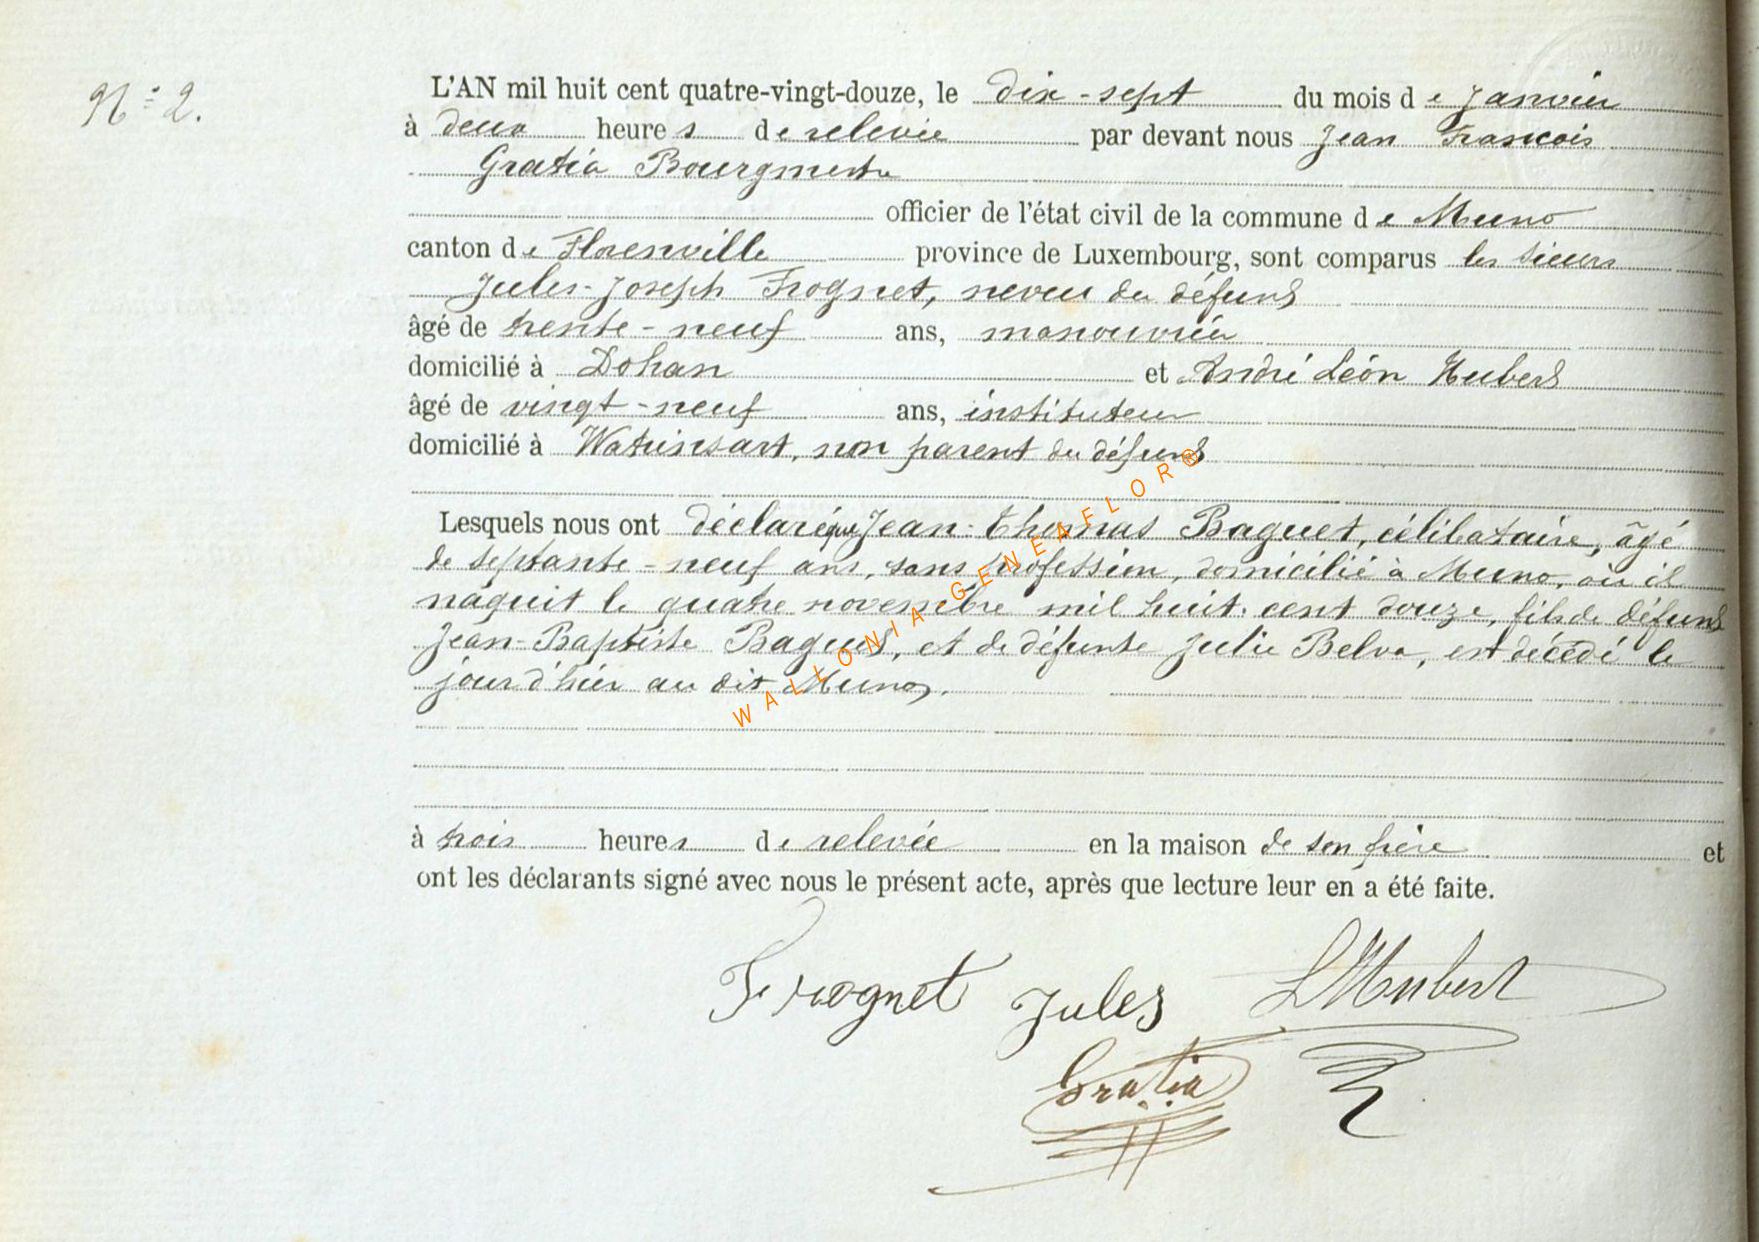 N° 2.
L'AN mil huit cent quatre-vingt-douze, le dix-sept du mois de Janvier
à deux heures de relevée par devant nous Jean François
Gratia Bourgmestre
officier de l'état civil de la commune de Muno
canton de Florenville province de Luxembourg, sont comparus les sieurs
Jules-Joseph Frognet, neveu du défunt
âgé de trente-neuf ans, manouvrier
domicilié à Dohan et André Léon Hubert
âgé de vingt-neuf ans, instituteur
domicilié à Watrinsart, non parent du défunt
Lesquels nous ont déclaré que Jean-Thomas Baguet, célibataire, âgé
de septante-neuf ans, sans profession, domicilié à Muno, où il
naquit le quatre novembre mil huit cent douze, fils de défunt
Jean-Baptiste Baguet, et de défunte Julie Belva, est décédé le
jour d'hier au dit Muno,
à trois heures de relevée en la maison de son frère et
ont les déclarants signé avec nous le présent acte, après que lecture leur en a été faite.
Frognet Jules LHubert
Gratia
WALLONIA GENEAFLOR®